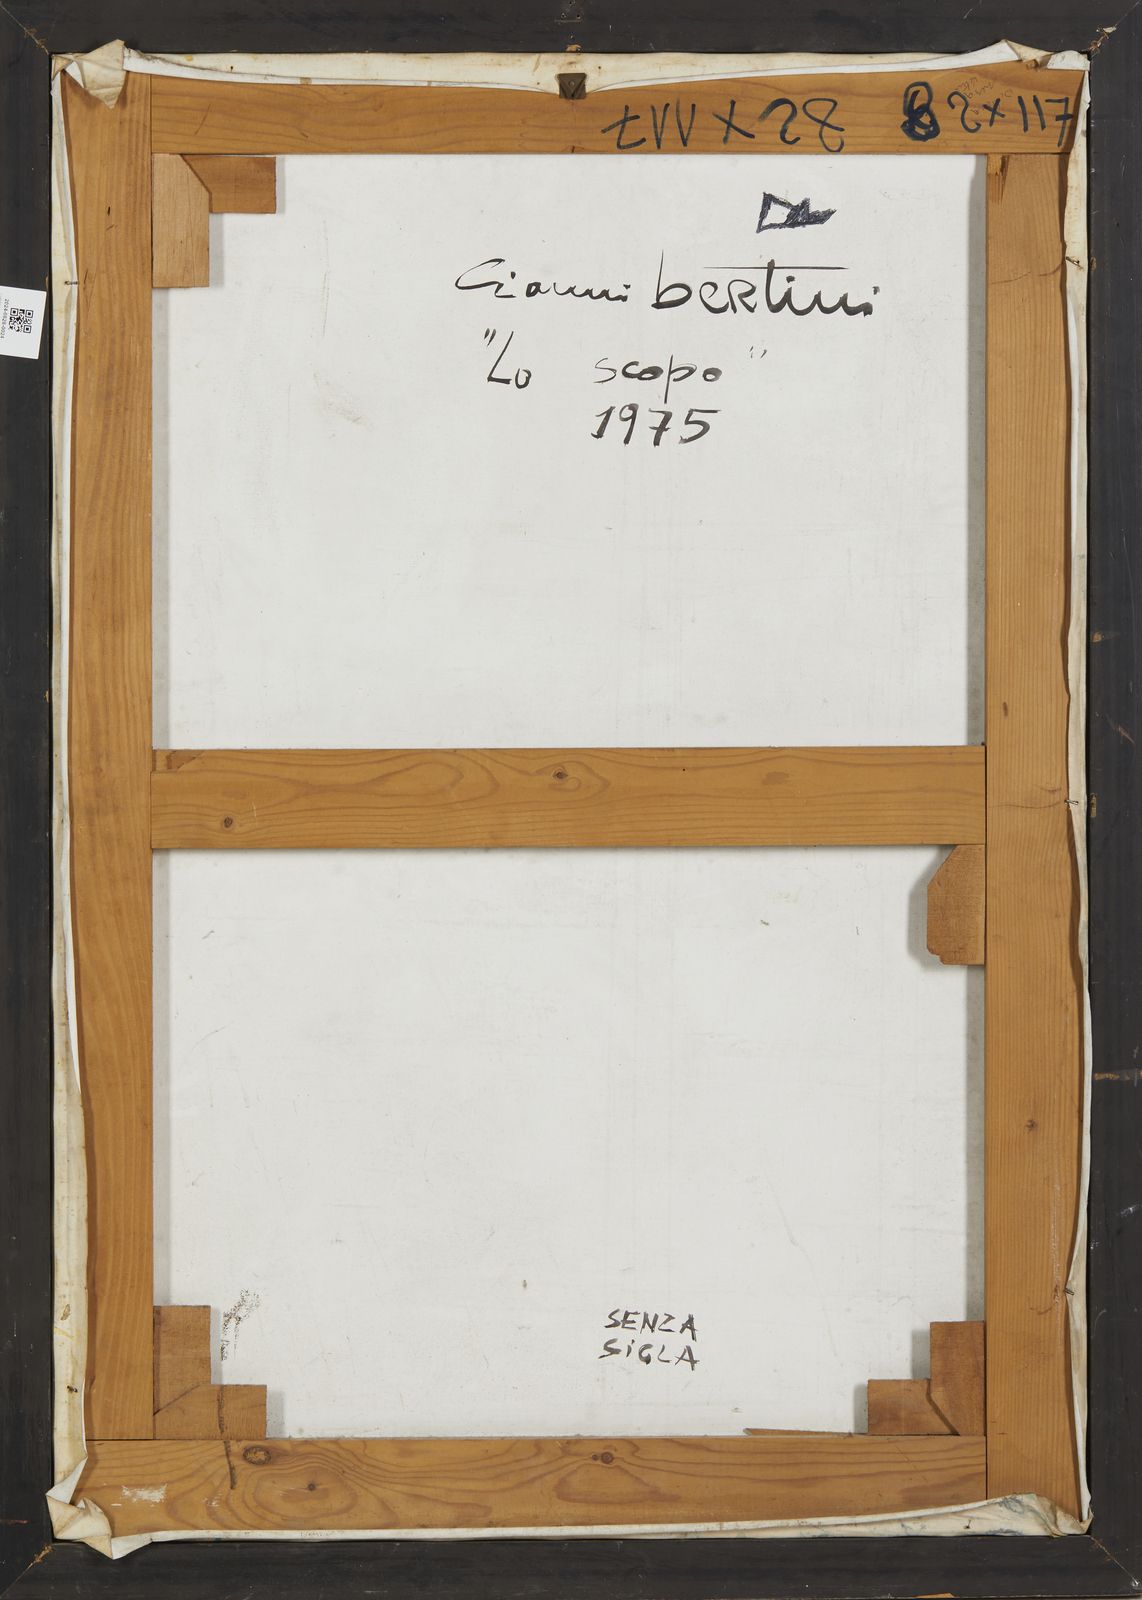 82 x 117
82 x 117
Gianni bertini
"Lo scopo"
1975
SENZA
SIGLA